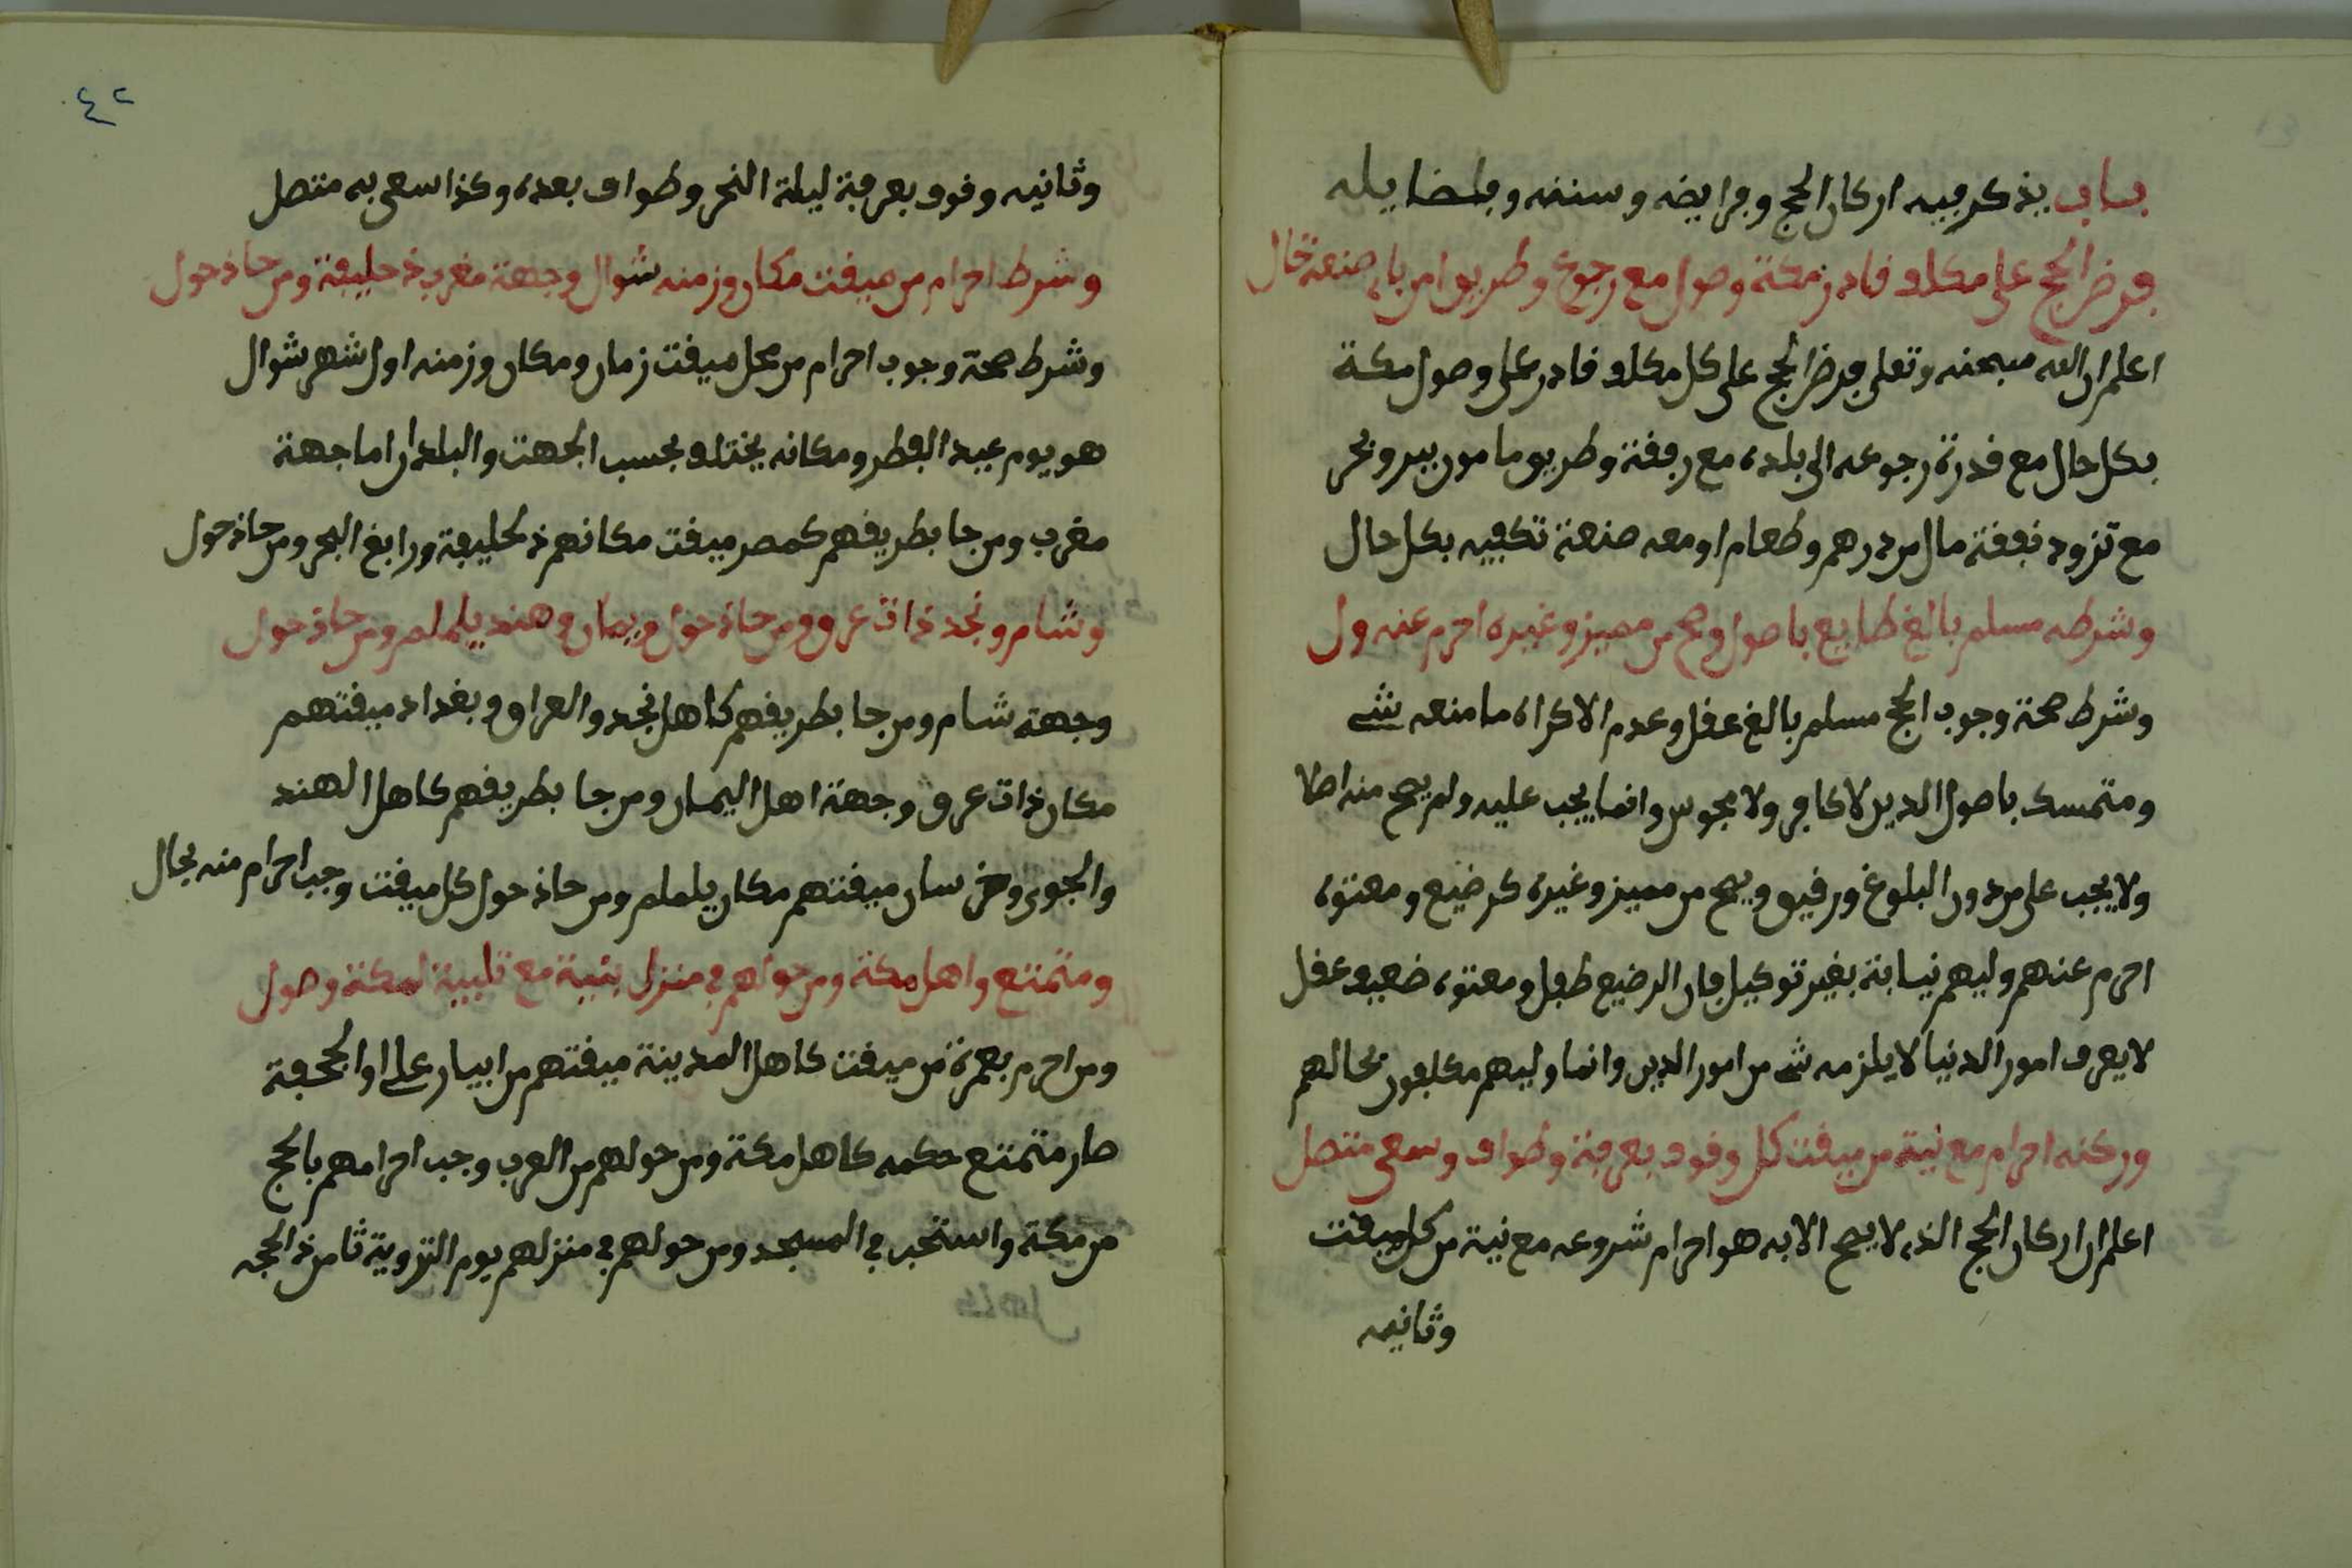 باب يذكر فيه اركان الحج وفرايضه وسننه وفضايله
فرض الحج على مكلف قادر مكة وصول مع رجوع وطريق امن بان صنعة قال
اعلم ان الله سبحنه وتعلى فرض الحج على كل مكلف قادر على وصول مكة
بكل حال مع قدرة رجوعه الى بلده مع رفقة وطريق مامون ببر وبحر
مع تزود نفقة مال من درهم وطعام او معه صنعة تكفيه بكل حال
وشرطه مسلم بالغ طايع باصول وصح من مميز وغيره احرم عنه ول
وشرط صحة وجوب الحج مسلم بالغ عقل وعدم الاكراه ما منعه شي
ومتمسك باصول الدين لا كافر ولا مجوس وانما يجب عليه ولم يصح منه اصلا
ولا يجب على من دون البلوغ ورقيق ويصح من مميز وغيره كرضيع ومعتوه
احرم عنهم وليهم نيابة بغير توكيل فان الرضيع طفل ومعتوه ضعيف عقل
لا يعرف امور الدنيا لا يلزمه شي من امور الدين وانما وليهم مكلفون بحالهم
وركنه احرام مع نية من ميقت كل وقوف بعرفة وطواف وسعى متصل
اعلم ان اركان الحج الذي لا يصح الا به هو احرام شروعه مع نية من كل ميقت
وثانيه
٤٢
وثانيه وقوف بعرفة ليلة النحر وطواف بعده وكذا سعى به متصل
وشرط احرام من ميقت مكان وزمنه شوال وجهة مغرب ذ حليفة ومن حاذ حول
وشرط صحة وجوب احرام من محل ميقت زمان ومكان وزمنه اول شهر شوال
هو يوم عيد الفطر ومكانه يختلف بحسب الجهت والبلدان اما جهة
مغرب ومن جا بطريقهم كمصر ميقت مكانهم ذ لحليفة ورابغ البحر ومن حاذ حول
وشام ونجد ذات عرق ومن حاذ حول ويمان وهند يلملم ومن حاذ حول
وجهة شام ومن جا بطريقهم كاهل نجد والعراق وبغداد ميقتهم
مكان ذات عرق وجهة اهل اليمان ومن جا بطريقهم كاهل الهند
والجوى وخرسان ميقتهم مكان يلملم ومن حاذ حول كل ميقت وجب احرام منه بحال
ومتمتع واهل مكة ومن حولهم في منزل بنية مع تلبية لمكة وصول
ومن احرم بعمرة من ميقت كاهل المدينة ميقتهم من ابيار على او الجحفة
صار متمتع حكمه كاهل مكة ومن حولهم من العرب وجب احرامهم بالحج
من مكة واستحب في المسجد ومن حولهم في منزلهم يوم التروية ثامن ذ الحجه